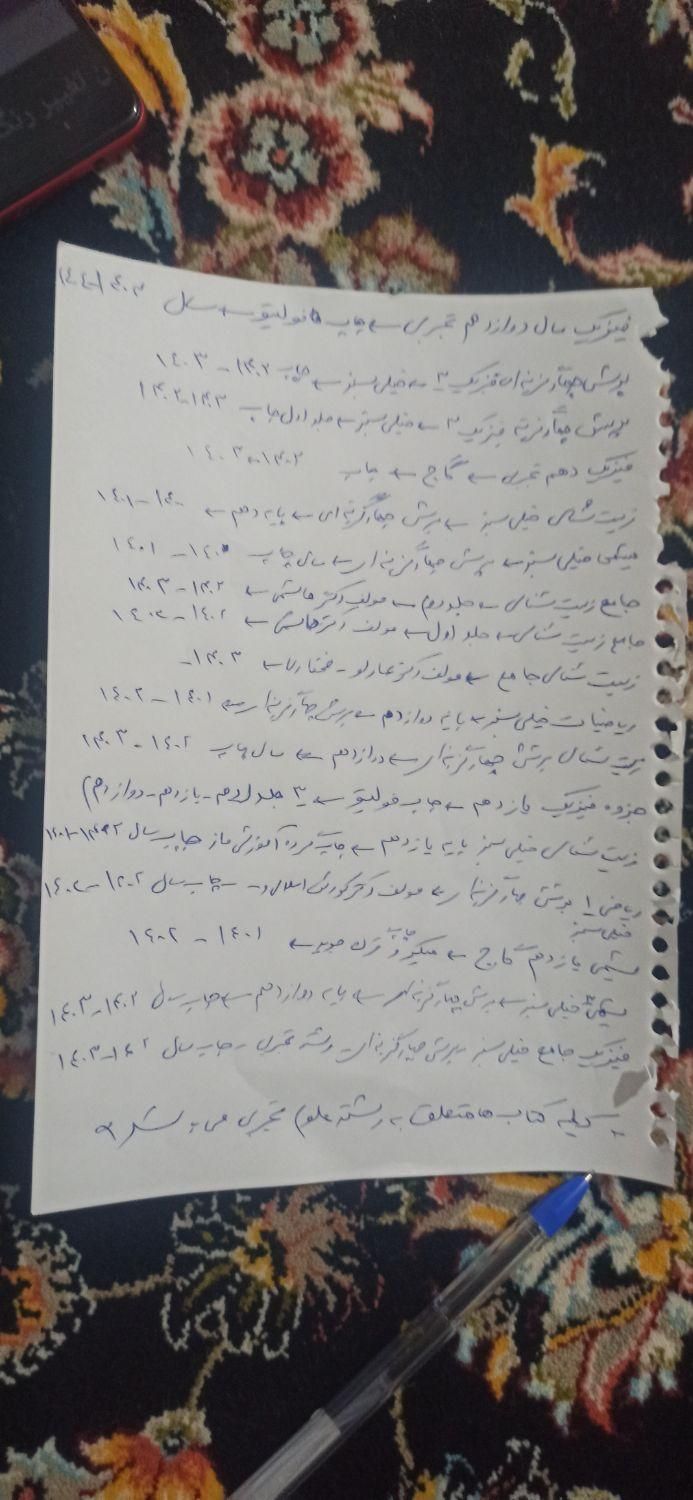 ن تغییر رنگ
فیزیک سال دوازدهم تجربی ← چاپ فولیتو ← سال ۱۴۰۳
پرسش چهارگزینه‌ای فیزیک ۳ ← خیلی سبز ← چاپ ۱۴۰۲ - ۱۴۰۳
پرسش چهارگزینه فیزیک ۲ ← خیلی سبز ← جلد اول چاپ ۱۴۰۳-۱۴۰۲
فیزیک دهم تجربی ← گاج ← چاپ ۱۴۰۲-۱۴۰۳
زیست شناسی خیلی سبز ← پرسش چهارگزینه‌ای ← پایه دهم ← ۱۴۰۰-۱۴۰۱
شیمی خیلی سبز ← پرسش چهارگزینه‌ای ← سال چاپ ۱۴۰۰ - ۱۴۰۱
جامع زیست شناسی ← جلد دوم ← مولف دکتر هاشمی ← ۱۴۰۲-۱۴۰۳
جامع زیست شناسی ← جلد اول ← مولف دکتر هاشمی ← ۱۴۰۲
زیست شناسی جامع ← مولف دکتر عمارلو - مختاری ← ۱۴۰۳-
ریاضیات خیلی سبز ← پایه دوازدهم ← پرسش چهارگزینه‌ای ← ۱۴۰۱ - ۱۴۰۲
زیست شناسی پرسش چهارگزینه‌ای ← دوازدهم ← سال چاپ ۱۴۰۲ - ۱۴۰۳
جزوه فیزیک یازدهم ← چاپ فولیتو ← ۳ جلد (دهم - یازدهم - دوازدهم)
زیست شناسی خیلی سبز پایه یازدهم ← چاپ گروه آموزشی ماز چاپ سال
ریاضی ۱ پرسش چهارگزینه‌ای ← مولف دکتر کوروش اسلامی ← چاپ سال ۱۴۰۲
خیلی سبز
شیمی یازدهم گاج ← میکرو قرن جدید ← چاپ ۱۴۰۱ - ۱۴۰۲
شیمی ۳ خیلی سبز ← پرسش چهارگزینه‌ای ← پایه دوازدهم ← چاپ سال ۱۴۰۲-۱۴۰۳
فیزیک جامع خیلی سبز ← پرسش چهارگزینه‌ای ← رشته تجربی ← چاپ سال ۱۴۰۲-۱۴۰۳
* کلیه کتاب ها متعلق به رشته علوم تجربی می باشد *